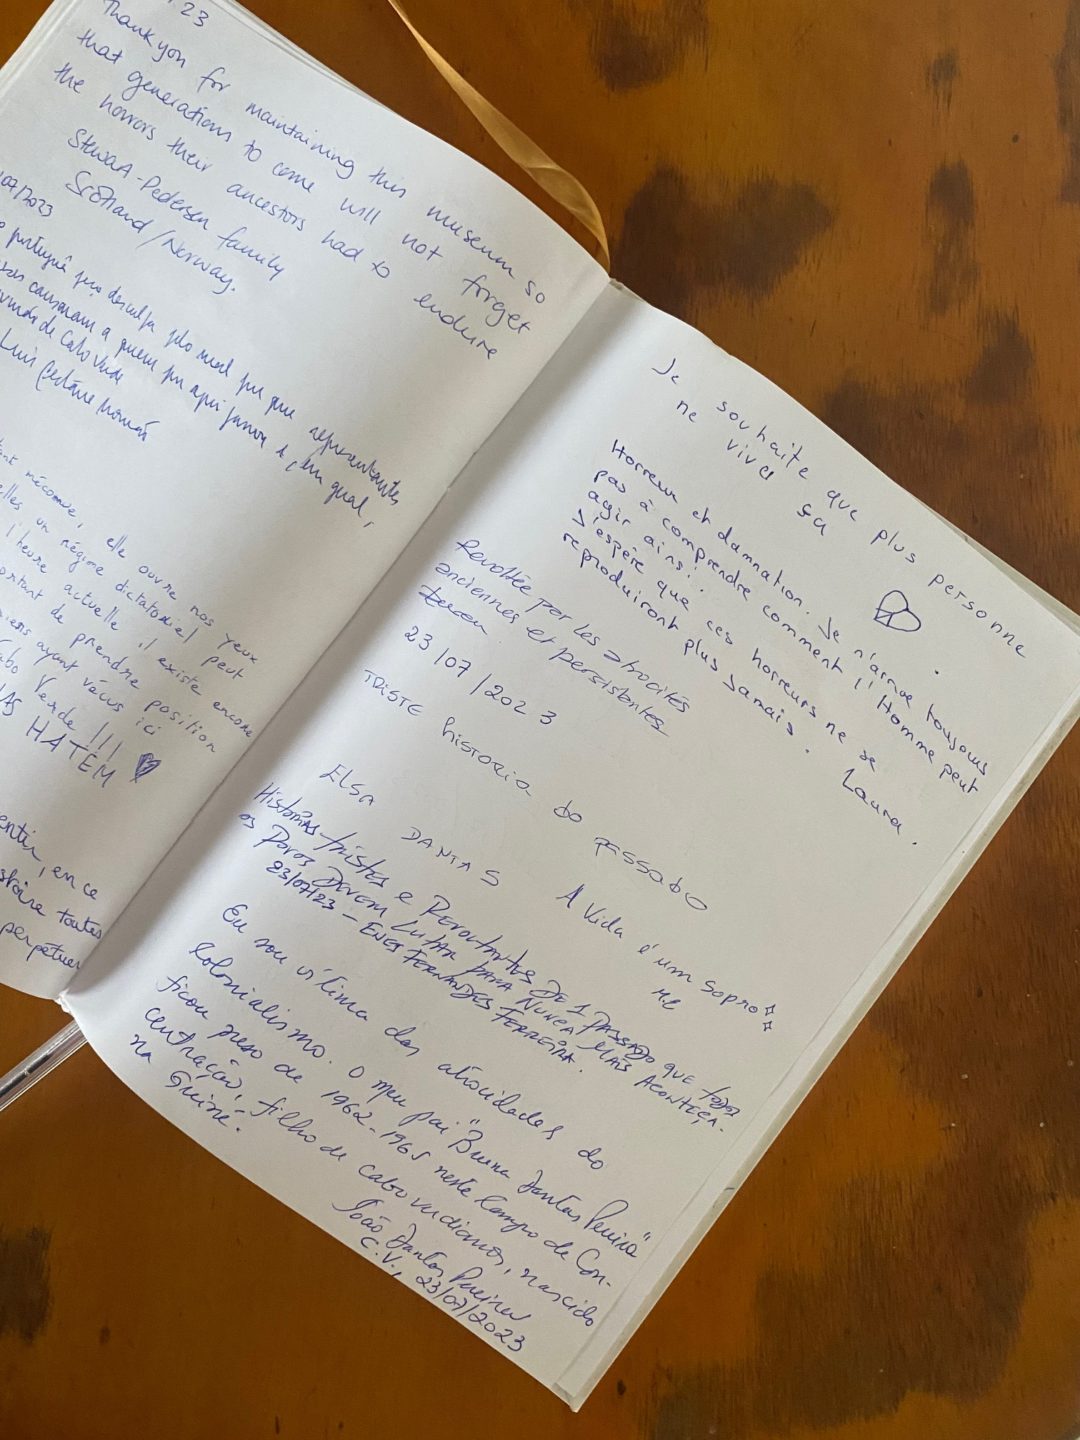 23
Thank you for maintaining this museum so
that generations to come will not forget
the horrors their ancestors had to endure
Stewart-Pedersen family
Scotland/Norway.
/2023
português peço desculpa pelo mal que representantes
causaram a quem por aqui passou e, em geral,
de Cabo Verde
Luís
méconnue, elle ouvre nos yeux
un régime dictatorial peut
l'heure actuelle il existe encore
de prendre position
ayant vécus ici
Verde !!!
HATEM
entir, en ce
toutes
perpétuer
Je souhaite que plus personne
ne vive sa
Horreur et damnation. Je n'arrive toujours
pas à comprendre comment l'Homme peut
agir ainsi.
J'espère que ces horreurs ne se
reproduiront plus jamais.
Laura.
Revoltée por les atrocités
anciennes et persistantes
23/07/2023
TRISTE historia do PASSADO
ELSA DANTAS
A Vida é um sopro
Histórias tristes e Revoltantes DE 1 PASSADO que todos
os Povos DEVEM LUTAR PARA NUNCA MAIS ACONTEÇA.
23/07/23 – ENES FERNANDES FERREIRA.
Eu sou vítima das atrocidades do
Colonialismo. O meu pai "Dantas Pereira"
ficou preso de 1962-1965 neste Campo de Con-
centração, filho de cabo verdianos, nascido
na Guiné.
João Dantas Pereira
C.V., 23/07/2023